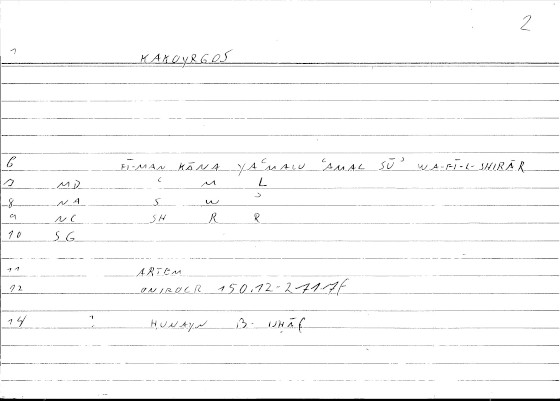 2
1 KAKOYRGOS
6 FĪ-MAN KĀNA YAʿMALU ʿAMAL SŪʾ WA-FĪ-L-SHIRĀR
7 MD ʿ M L
8 NA S W ʾ
9 NC SH R R
10 SG
11 ARTEM
12 ONIROCR 150.12-2717f
14 : ḤUNAYN B-